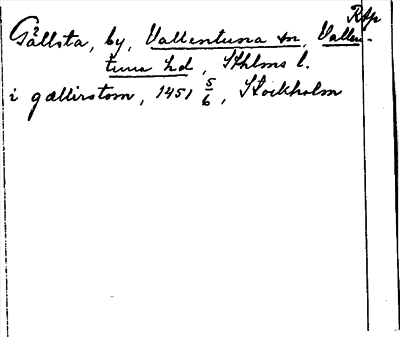 Rap
Gällsta, by, Vallentuna sn, Vallen-
tuna hd, Sthlms l.
i gællirstom, 1451 5/6, Stockholm